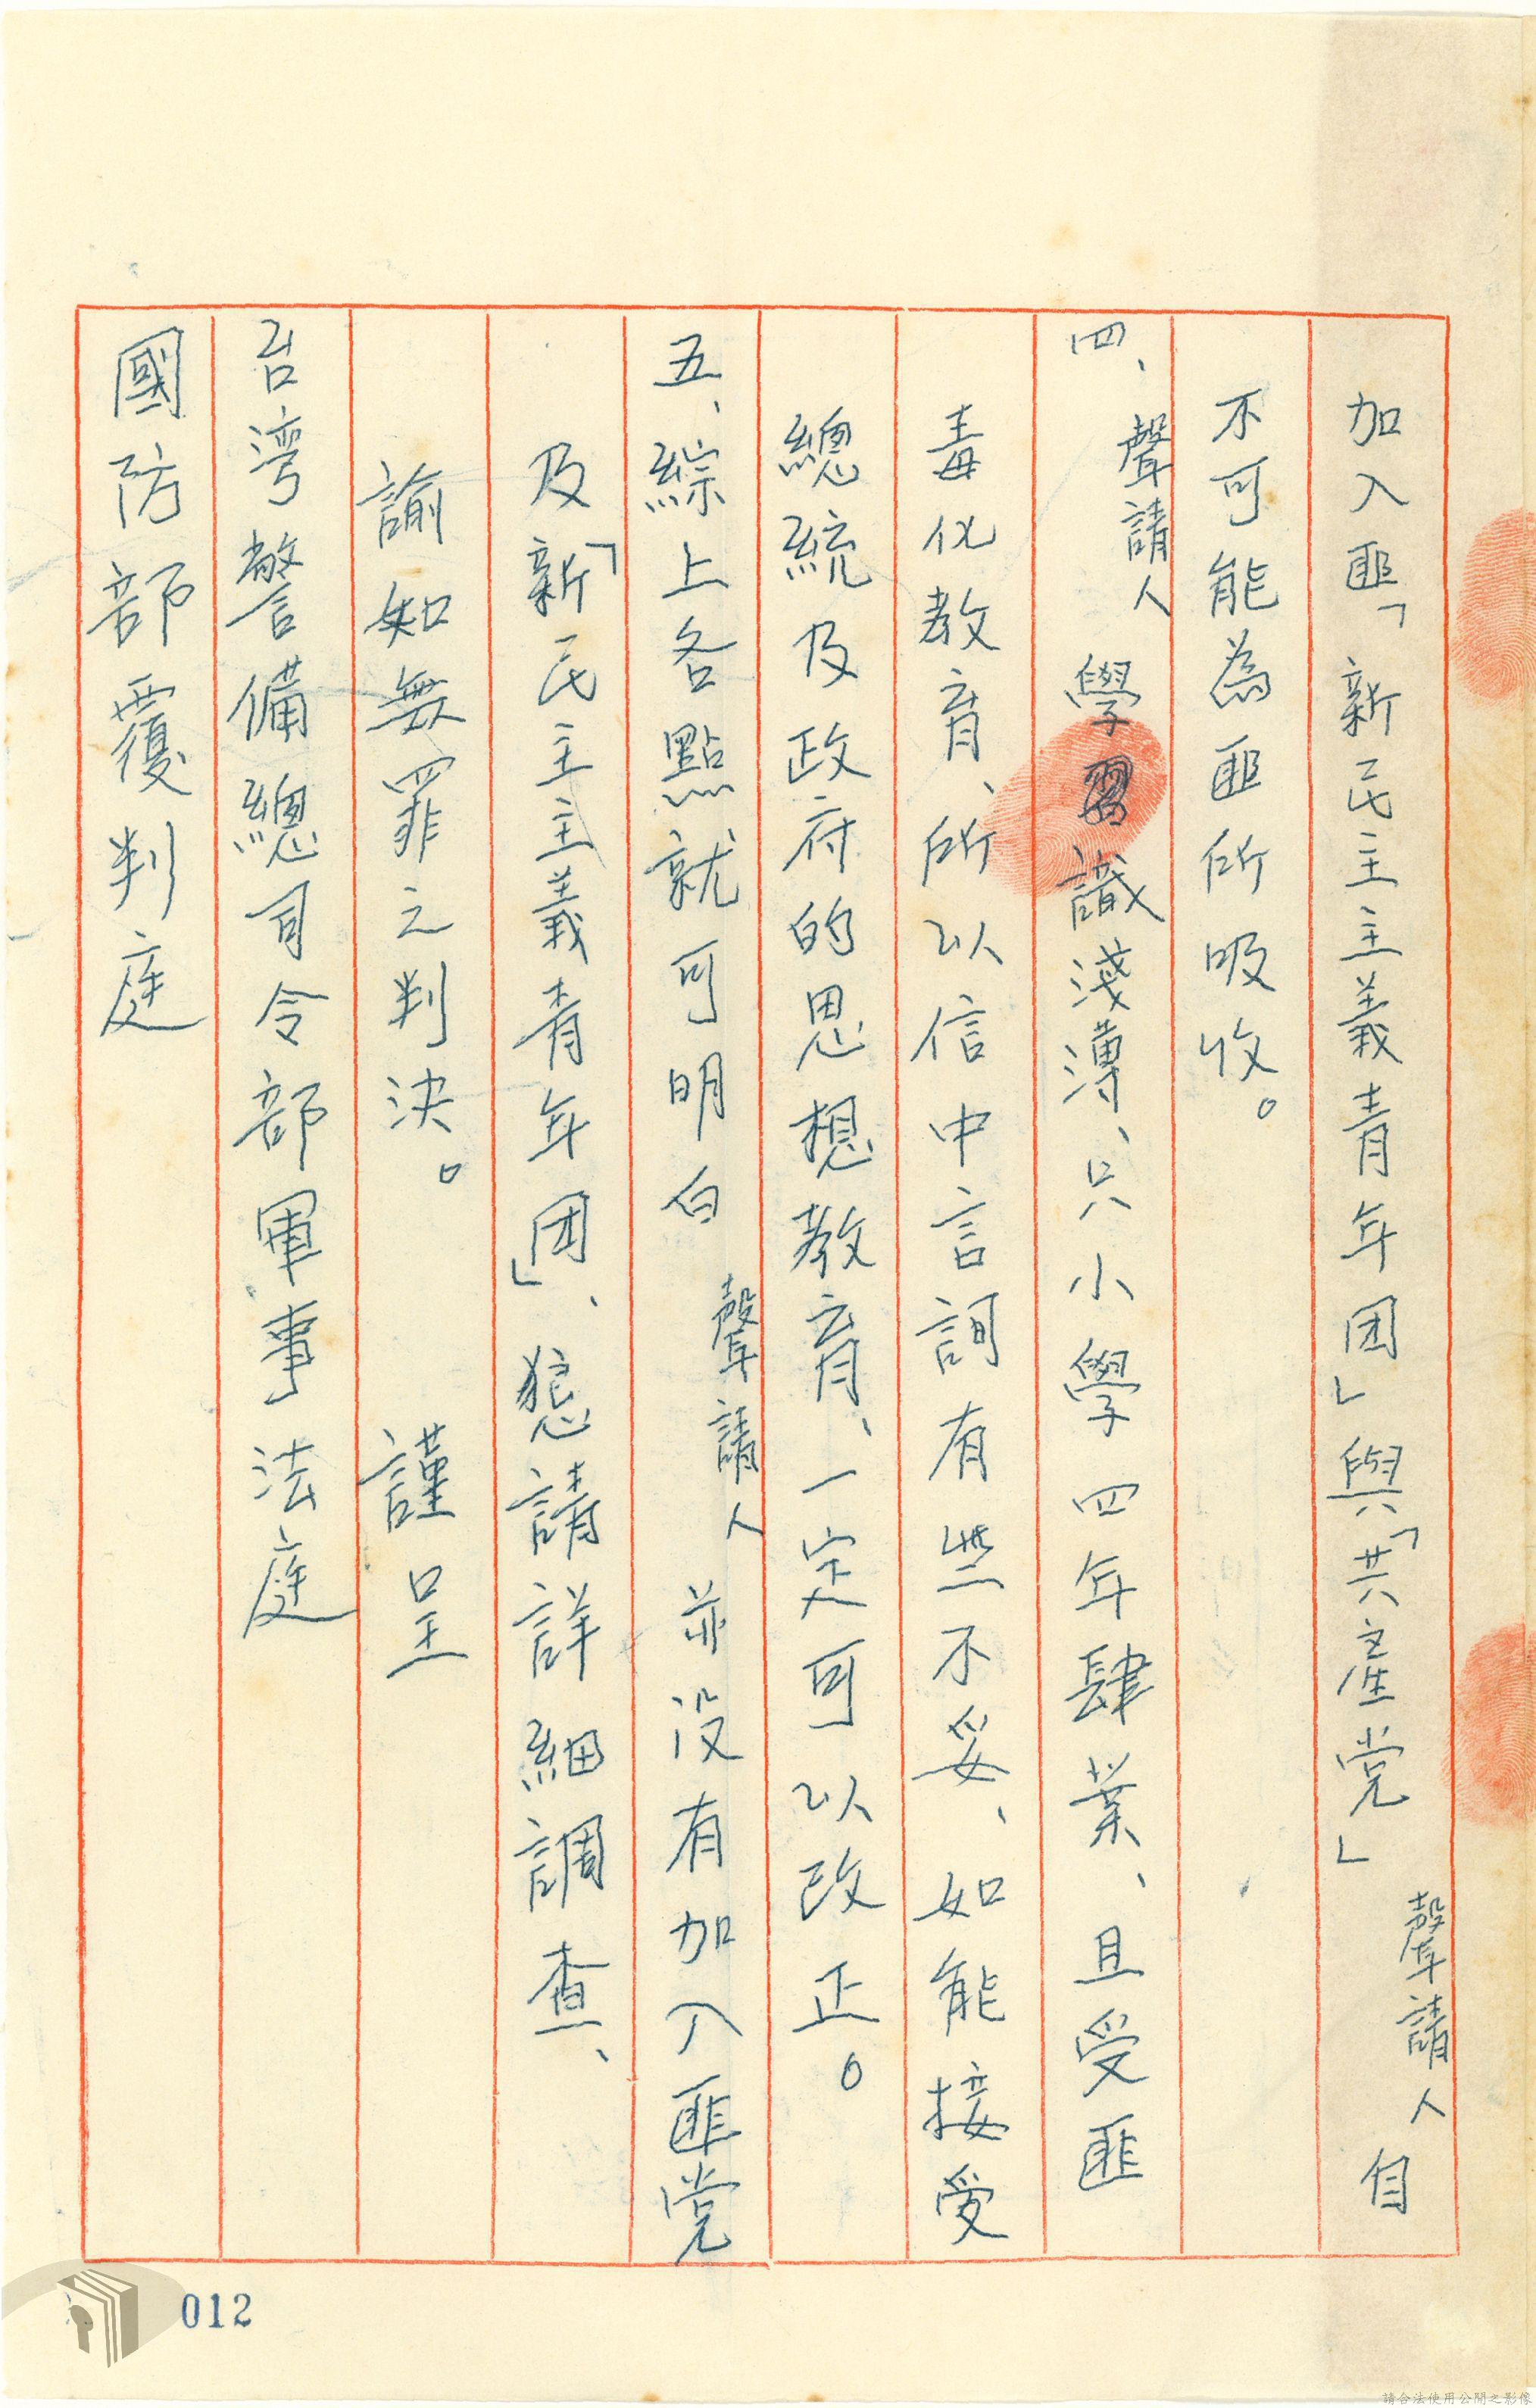 加入匪「新民主主義青年团」與「共產党」聲請人自
不可能為匪所吸收。
四、聲請人學識淺薄、只小學四年肆業、且受匪
毒化教育、所以信中言詞有些不妥、如能接受
總統及政府的思想教育、一定可以改正。
五、綜上各點就可明白聲請人並没有加入匪党
及「新民主主義青年团」、懇請詳細調查、
諭知無罪之判決。 謹呈
台湾警備總司令部軍事法庭
國防部覆判庭
012
請合法使用公開之影像